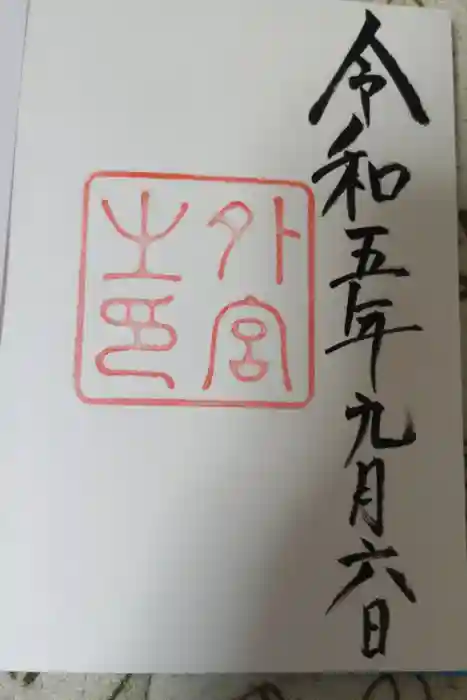 令和五年九月六日
外宮
之印